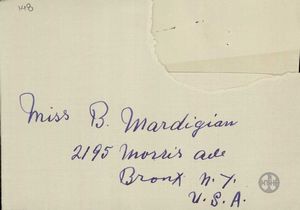 148
Miss B. Mardigian
2195 Morris ave
Bronx N.Y.
U.S.A.